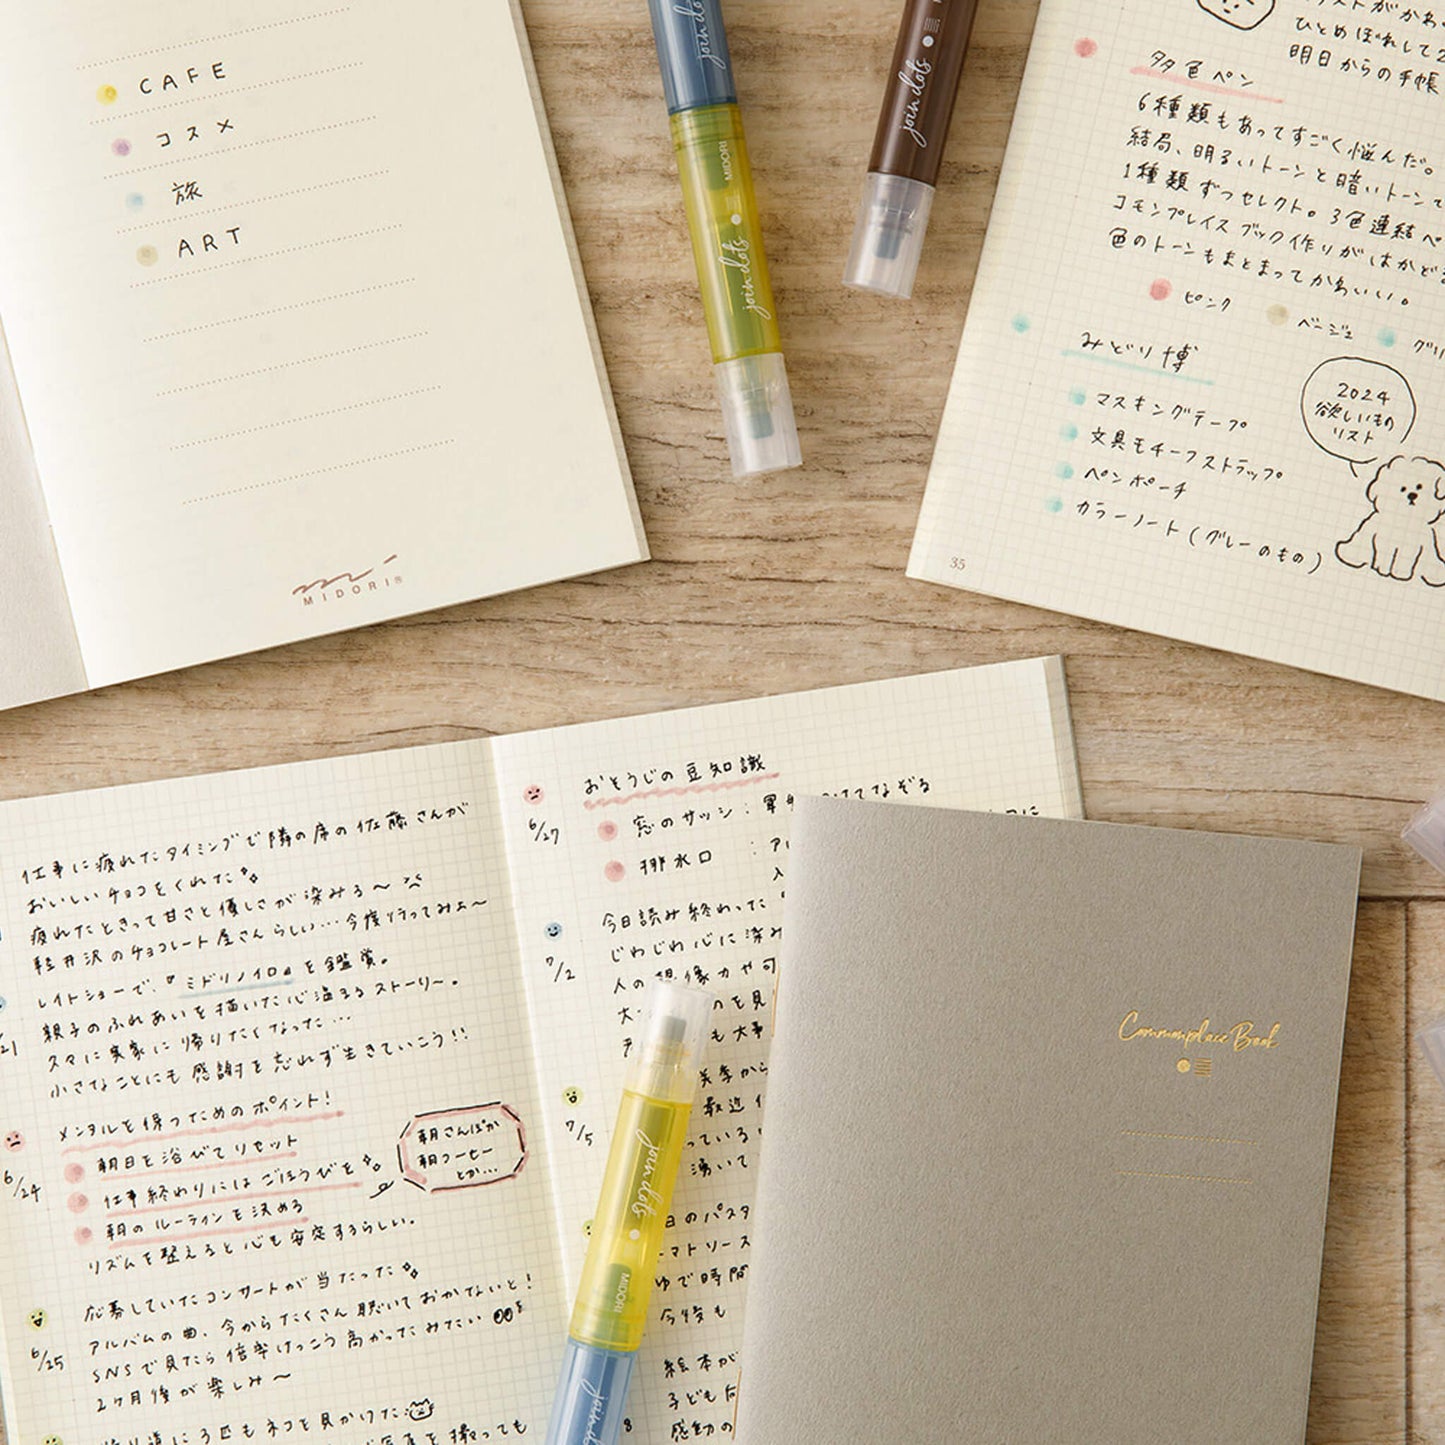 CAFE
コスメ
旅
ART
MIDORI®
join dots
join dots
MIDORI
join dots
ひとめぼれして2
明日からの手帳
多色ペン
6種類もあってすごく悩んだ。
結局、明るいトーンと暗いトーンで
1種類ずつセレクト。3色連結ペ
コモンプレイスブック作りがはかど
色のトーンもまとまってかわいい。
ピンク
ベージュ
グリ
みどり博
マスキングテープ
文具モチーフストラップ
ペンポーチ
カラーノート(グレーのもの)
2024
欲しいもの
リスト
35
仕事に疲れたタイミングで隣の席の佐藤さんが
おいしいチョコをくれた
疲れたときって甘さと優しさが染みる〜
軽井沢のチョコレート屋さんらしい…今度行ってみよ〜
レイトショーで、『ミドリノイロ』を鑑賞。
親子のふれあいを描いた心温まるストーリー。
スマに実家に帰りたくなった…
小さなことにも感謝を忘れず生きていこう!!
/21
メンタルを保つためのポイント!
6/24
朝日を浴びてリセット
仕事終わりにはごほうびを
朝のルーティンを決める
リズムを整えると心も安定するらしい。
朝さんぽか
朝コーヒー
とか…
応募していたコンサートが当たった
6/25
アルバムの曲、今からたくさん聴いておかないと!
SNSで見たら倍率けっこう高かったみたい
2ヶ月後が楽しみ〜
道に3匹もネコを見かけた
おそうじの豆知識
6/27
窓のサッシ:軍手
つけてなぞる
排水口:
今日読み終わった
7/2
じわじわ心に染み
人の想像力や
も大事
7/5
最近
湧いて
日のパスタ
マトソース
ゆで時間
今後も
絵本が
子ども
感動の
8
join dots
MIDORI
join dots
Commonplace Book